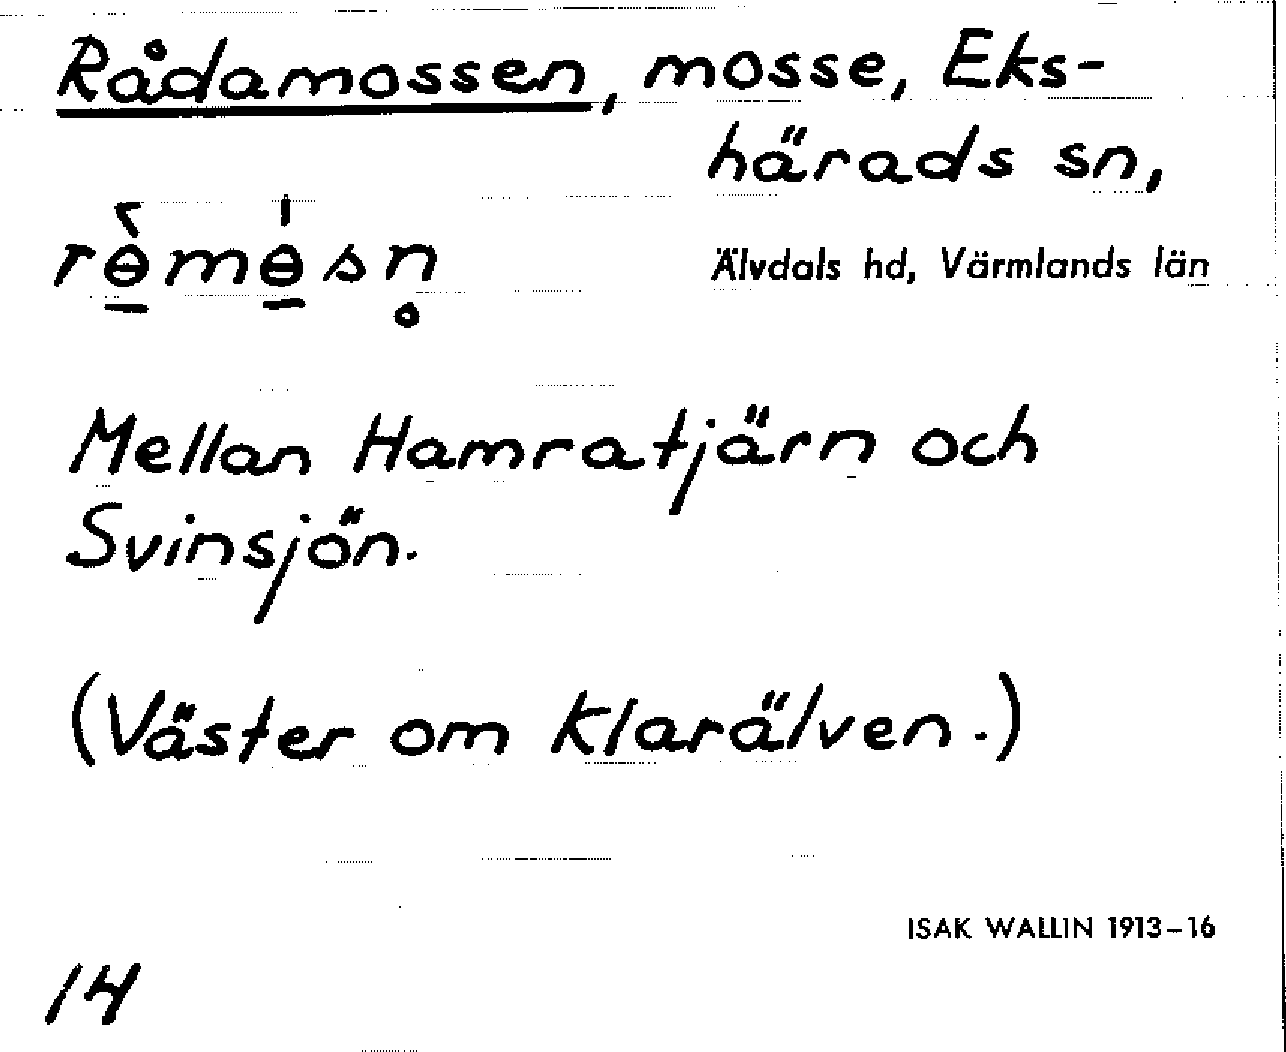 Rådamossen, mosse, Eks-
härads sn,
rɵ̠̀mɵ̠́sn̥
Älvdals hd, Värmlands län
Mellan Hamratjärn och
Svinsjön.
(Väster om Klarälven.)
ISAK WALLIN 1913–16
14